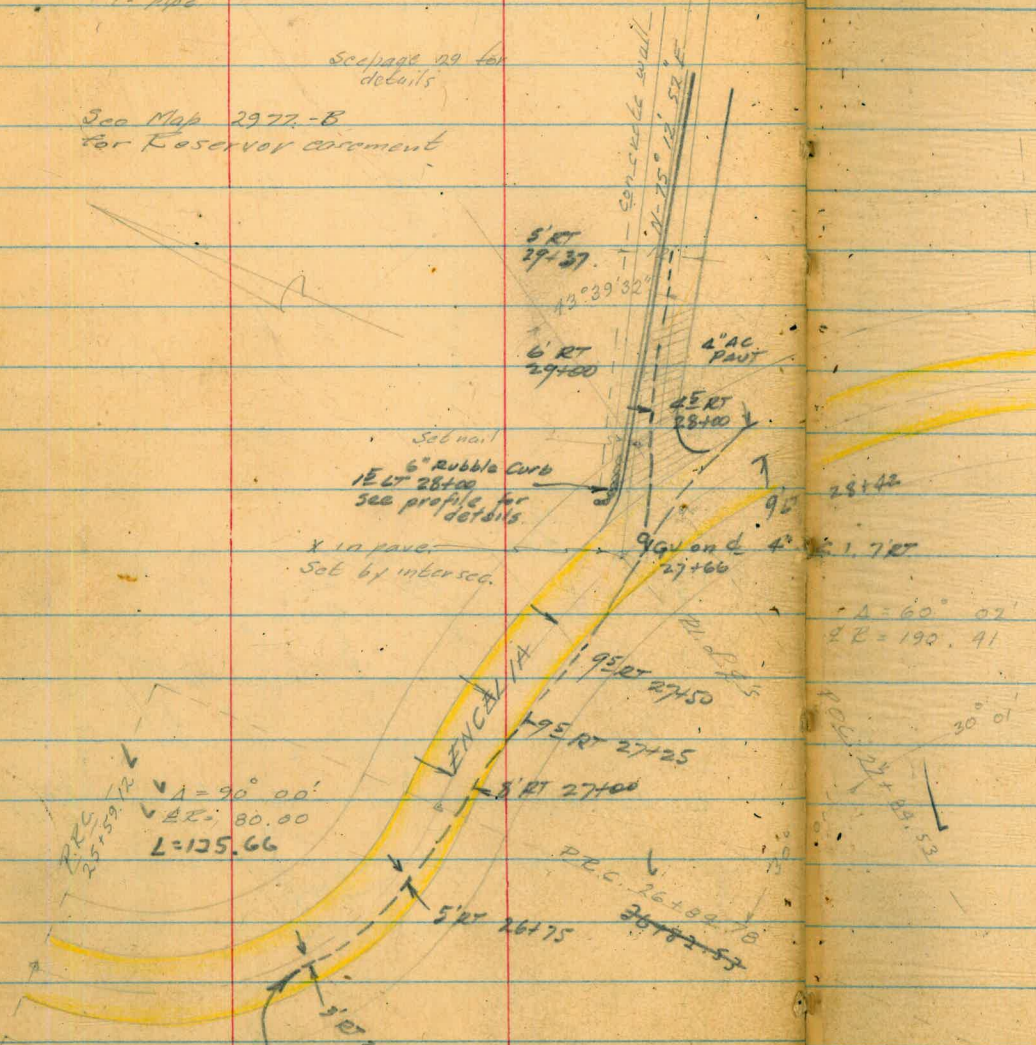 See page 29 for
details
See Map 2977-B
for Reservor easement
concrete wall
N-75° 12' 52" E
5' RT
29+37
43°39'32"
6' RT
29+00
4" AC
PAVT
4 5 RT
28+00
Set nail
6" Rubble Curb
1 5 LT 28+00
see profile for
details
28+42
X in pave.
Set by intersec.
GV on ȼ 4"
27+66
1.7' RT
Δ = 60° 02'
R = 190.91
9 5 RT 27+50
ENCALIA
9 5 RT 27+25
30° 01'
P.O.C. 27+84.53
8' RT 27+00
Δ = 90° 00'
R = 80.00
L = 125.66
P.R.C.
25+59.12
P.R.C. 26+84.78
26+82.53
5' RT 26+75
5' RT